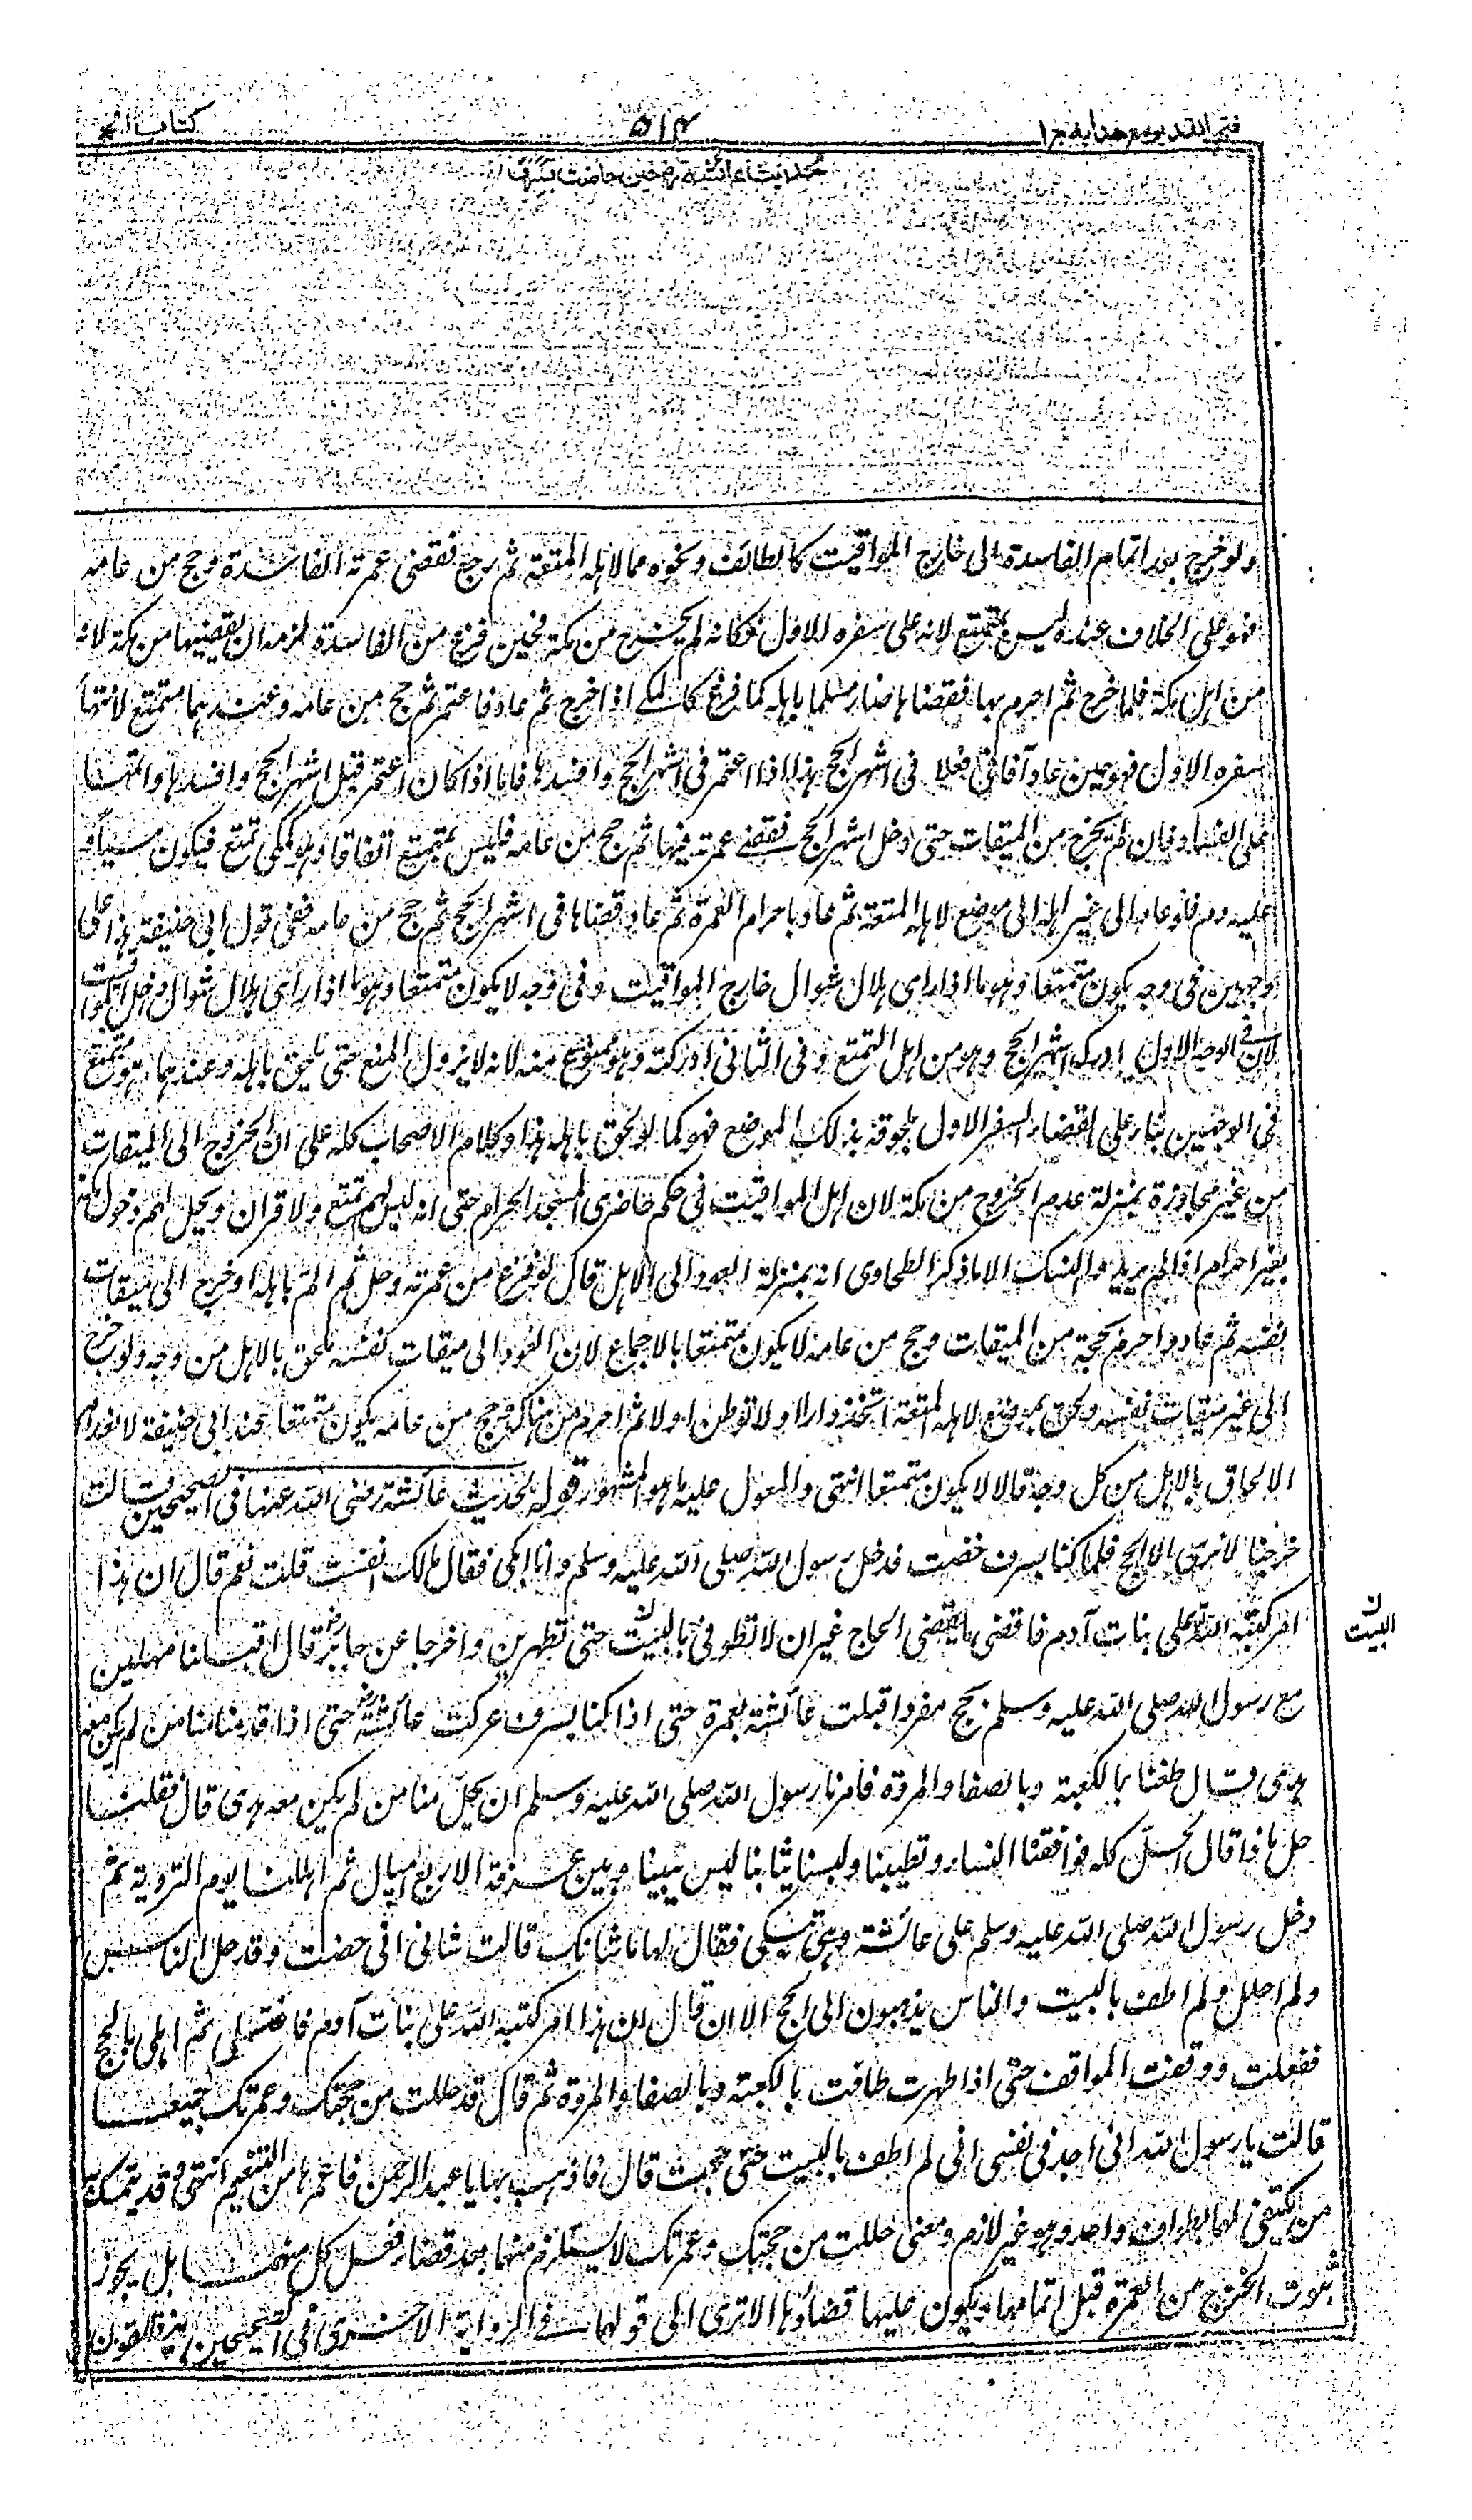 فتح القدير مع هدايه ج ١
٥١٤
كتاب الحج
حديث عائشة رض حين حاضت بسرف
ولو خرج بعد اتمام الفاسدة الى خارج المواقيت كالطائف ونحوه مما لاهله المتعة ثم رجع فقضى عمرته الفاسدة وحج من عامه
فهو على الخلاف عنده ليس بمتمتع لانه على سفره الاول فكانه لم يخرج من مكة فحين فرغ من الفاسدة لزمه ان يقضيها من مكة لانه
من اهل مكة فلما خرج ثم احرم بها فقضاها صار ملما باهله كما فرغ كالمكي اذا خرج ثم عاد فاعتمر ثم حج من عامه وعندهما متمتع لانتهاء
سفره الاول فهو حين عاد آفاقي فعلا في اشهر الحج هذا اذا اعتمر في اشهر الحج وافسدها فاما اذا كان اعتمر قبل اشهر الحج وافسدها واتمها
على الفساد فان لم يخرج من الميقات حتى دخل اشهر الحج فقضى عمرته فيها ثم حج من عامه فليس بمتمتع اتفاقا وهو كمكي تمتع فيكون مسيأ و
عليه دم فلو عاد الى غير اهله الى موضع لاهله المتعة ثم عاد باحرام العمرة ثم عاد قضاها في اشهر الحج ثم حج من عامه ففي قول ابي حنيفة هذا على
وجهين في وجه يكون متمتعا وهو ما اذا راى هلال شوال خارج المواقيت وفي وجه لا يكون متمتعا وهو ما اذا راى هلال شوال داخل المواقيت
لان في الوجه الاول ادركه اشهر الحج وهو من اهل التمتع وفي الثاني ادركته وهو ممنوع منه لانه لا يزول المنع حتى يلحق باهله وعندهما هو متمتع
في الوجهين بناء على انقضاء السفر الاول بلحوقه بذلك الموضع فهو كما لو لحق باهله هذا وكلام الاصحاب كله على ان الخروج الى الميقات
من غير مجاوزة بمنزلة عدم الخروج من مكة لان اهل المواقيت في حكم حاضري المسجد الحرام حتى انه ليس لهم تمتع ولا قران ويحل لهم دخول مكة
بغير احرام اذا لم يريدوا النسك الا ما ذكر الطحاوي انه بمنزلة العود الى الاهل قال لو فرغ من عمرته وحل ثم الم باهله او خرج الى ميقات
نفسه ثم عاد واحرم بحجة من الميقات وحج من عامه لا يكون متمتعا بالاجماع لان العود الى ميقات نفسه ملحق بالاهل من وجه ولو خرج
الى غير ميقات نفسه ولحق بموضع لاهله المتعة اتخذ دارا او لا توطن او لا ثم احرم من هناك وحج من عامه يكون متمتعا عند ابي حنيفة لانعدام
الالحاق بالاهل من كل وجه وقالا لا يكون متمتعا انتهى والمعول عليه ما هو المشهور قوله لحديث عائشة رضي الله عنها في الصحيحين قالت
خرجنا لا نرى الا الحج فلما كنا بسرف حضت فدخل رسول الله صلى الله عليه وسلم وانا ابكي فقال مالك انفست قلت نعم قال ان هذا
امر كتبه الله على بنات آدم فاقضي ما يقضي الحاج غير ان لا تطوفي بالبيت حتى تطهرين واخرجا عن جابر رض قال اقبلنا مهلين
ن
البيت
مع رسول الله صلى الله عليه وسلم بحج مفرد اقبلت عائشة بعمرة حتى اذا كنا بسرف عركت عائشة رض حتى اذا قدمنا منا من لم يكن معه
هدي قال طفنا بالكعبة وبالصفا والمروة فامرنا رسول الله صلى الله عليه وسلم ان يحل منا من لم يكن معه هدى قال فقلنا
حل ماذا قال الحل كله فواقعنا النساء وتطيبنا ولبسنا ثيابنا ليس بيننا وبين عرفة الا اربع اميال ثم اهللنا يوم التروية ثم
دخل رسول الله صلى الله عليه وسلم على عائشة وهي تبكي فقال لها ما شانك قالت شاني اني حضت وقد حل الناس
ولم احلل ولم اطف بالبيت والناس يذهبون الى الحج الان قال ان هذا امر كتبه الله على بنات آدم فاغتسلي ثم اهلي بالحج
ففعلت ووقفت المواقف حتى اذا طهرت طافت بالكعبة وبالصفا والمروة ثم قال قد حللت من حجتك وعمرتك جميعا
قالت يا رسول الله اني اجد في نفسي اني لم اطف بالبيت حتى حججت قال فاذهب بها يا عبد الرحمن فاعمرها من التنعيم انتهى وقد يتمسك به
من يكتفى لهما بطواف واحد وهو غير لازم ومعنى حللت من حجتك وعمرتك لا يستلزم منهما بعد قضاء فعل كل منهما بل يجوز
ثبوت الخروج من العمرة قبل اتمامها ويكون عليها قضاؤها الا ترى الى قولها في الرواية الاخرى في الصحيحين